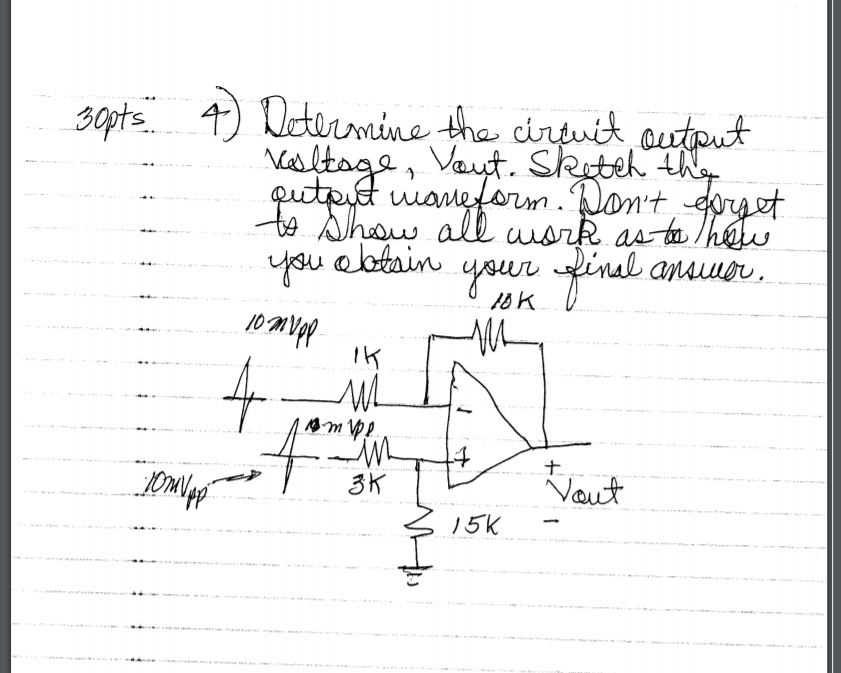 30pts 4) Determine the circuit output
voltage, Vout. Sketch the
output waveform. Don't forget
to show all work as to how
you obtain your final answer.
10K
10mVpp
1K
mVpp
10mVpp
3K
-
+
+
Vout
-
15K